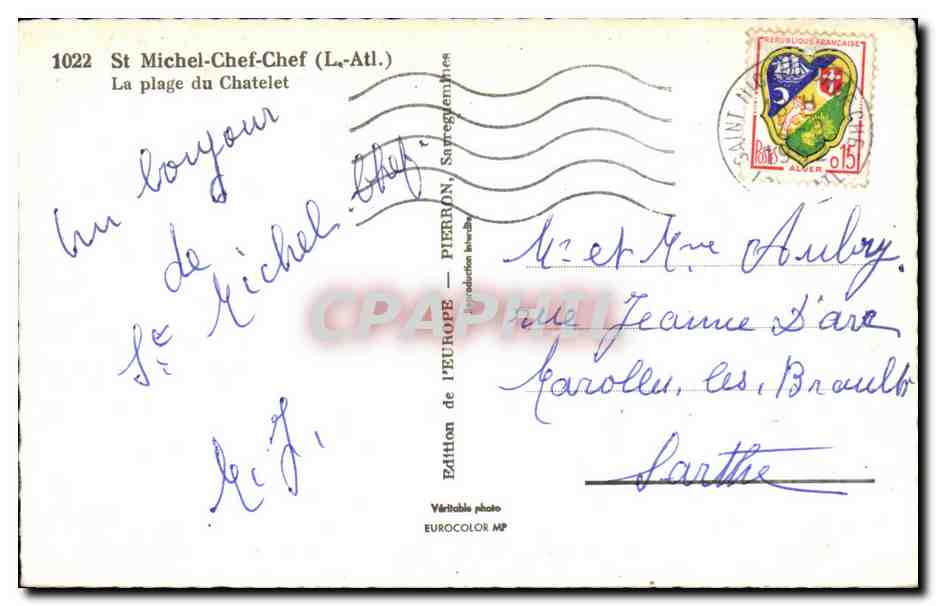 1022 St Michel-Chef-Chef (L.-Atl.)
La plage du Chatelet
Un bonjour
de
St Michel Chef Chef
M. J.
Edition de l'EUROPE — PIERRON, Sarreguemines
Reproduction interdite
Véritable photo
EUROCOLOR MP
REPUBLIQUE FRANÇAISE
POSTES
0,15
ALGER
SAINT MIC
CPAPHIL
Mr et Mme Aubry.
rue Jeanne D'arc
Marolles, les, Braults
Sarthe